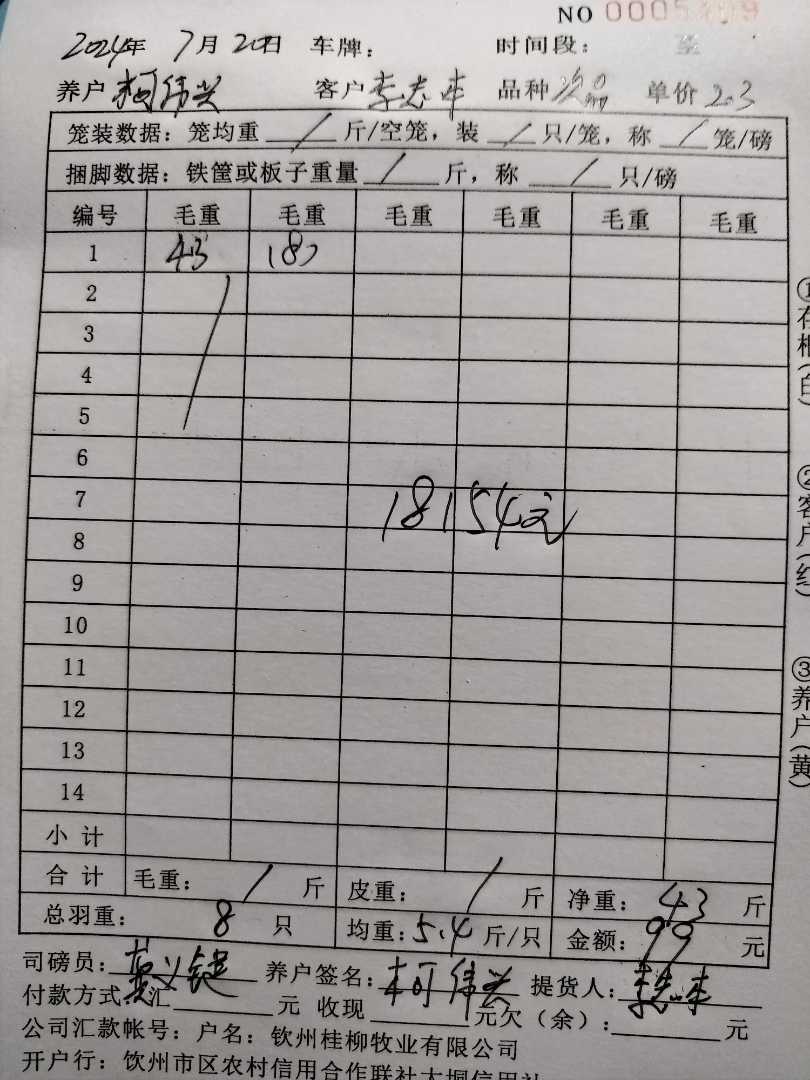 NO 0005
2024年 7月 20日 车牌： 时间段： 至
养户 柯伟兴 客户 李志 品种 次品 单价 2.3
笼装数据：笼均重 / 斤/空笼，装 / 只/笼，称 / 笼/磅
捆脚数据：铁筐或板子重量 / 斤，称 / 只/磅
编号 毛重 毛重 毛重 毛重 毛重 毛重
1 43 (8)
2
3
4
5
6
7
18154元
8
9
10
11
12
13
14
小计
合计 毛重： / 斤 皮重： / 斤 净重： 43 斤
总羽重： 8 只 均重：5.4 斤/只 金额： 99 元
司磅员： 养户签名：柯伟兴 提货人：李志
付款方式： 汇 元 收现 元欠（余）： 元
公司汇款帐号：户名：钦州桂柳牧业有限公司
开户行：钦州市区农村信用合作联社大垌信用社
①存根（白）
②客户（红）
③养户（黄）